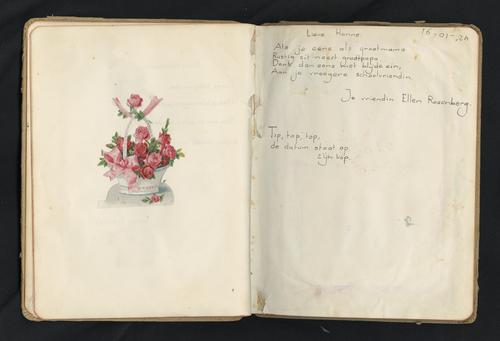 Lieve Hanne.
Als je eens als grootmama
Rustig zit naast grootpapa
Denk dan eens met blijde zin,
Aan je vroegere schoolvriendin.
Je vriendin Ellen Rosenberg.
Tip, tap, top,
de datum staat op
zijn kop.